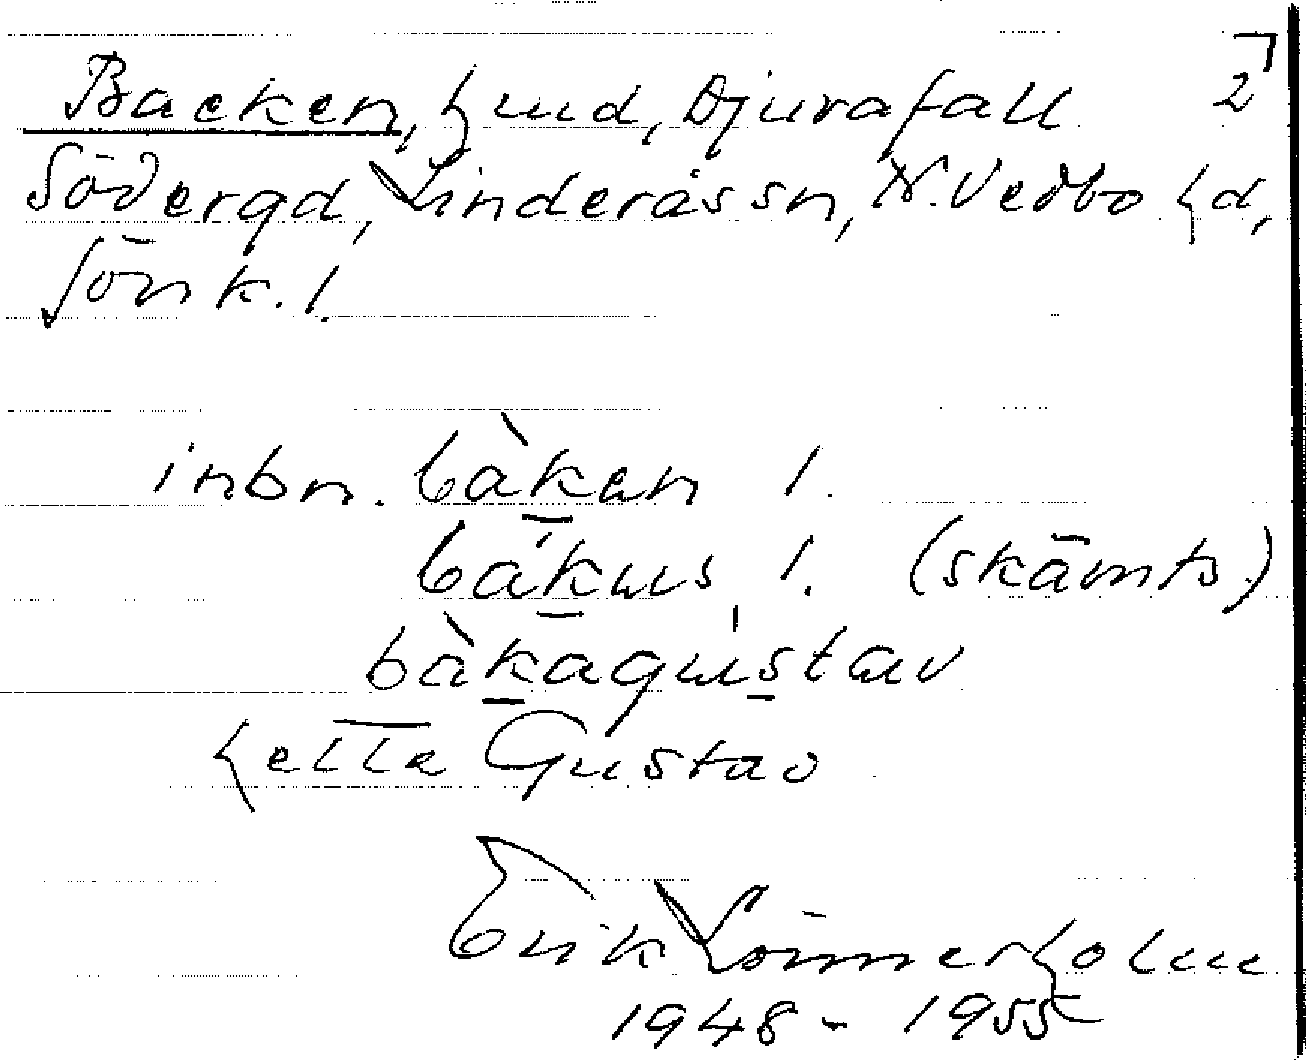 Backen, hmd, Djurafall 2
Södergd, Linderås sn, N. Vedbo hd,
Jönk. l.
inbn. bàkan l.
bákus l. (skämts.)
bàkagustav
hette Gustav
Erik Lönnerholm
1948 - 1955